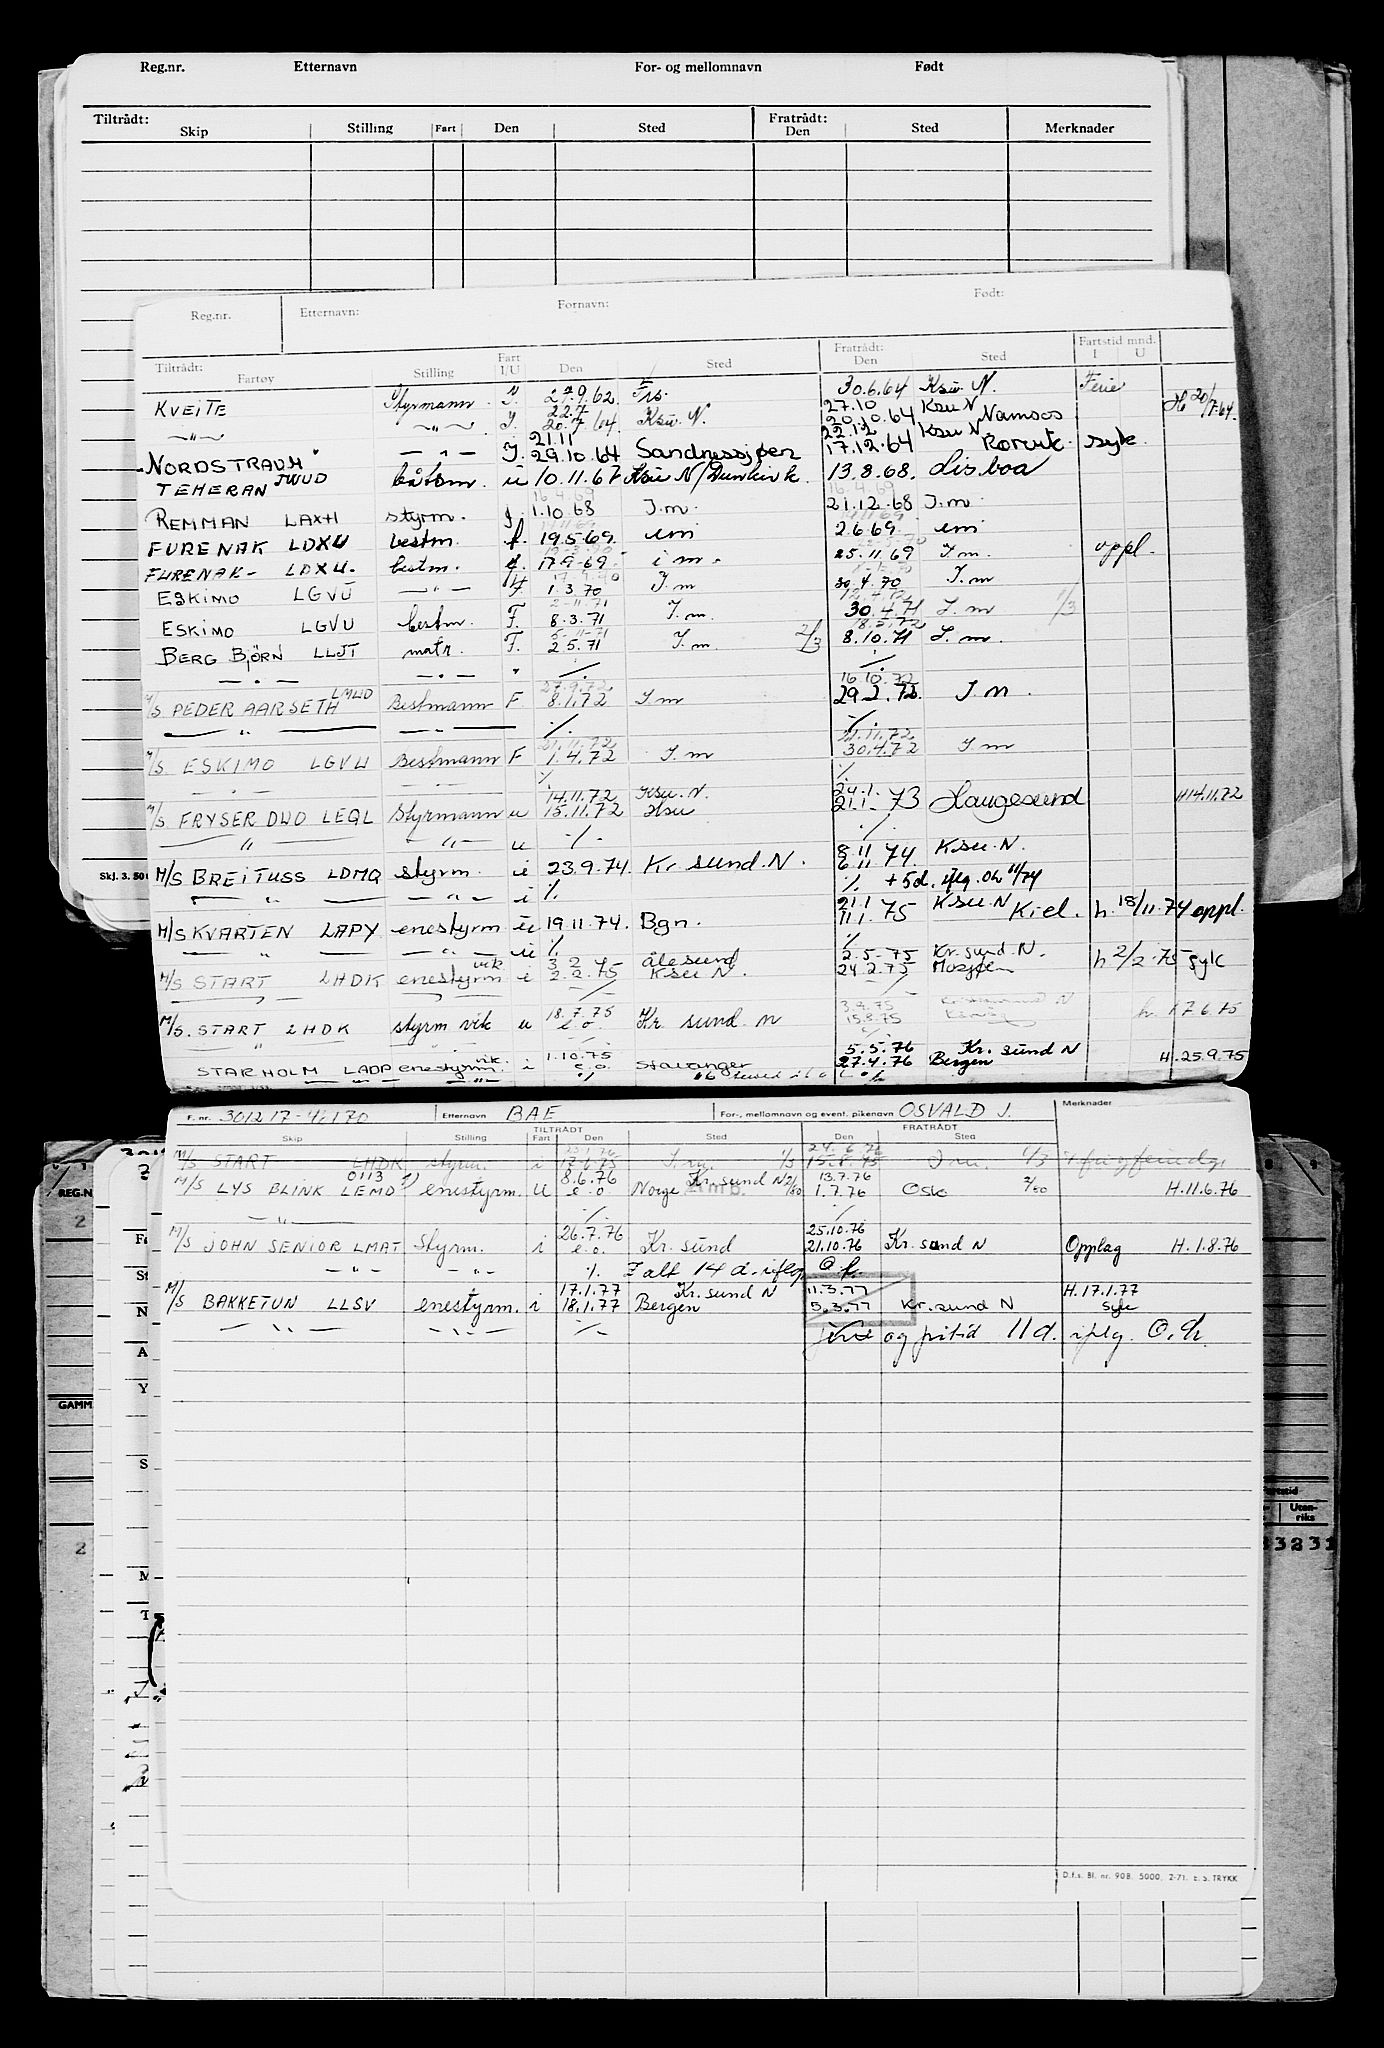 Reg.nr. Etternavn For- og mellomnavn Født
Tiltrådt: Fratrådt:
Skip Stilling Fart Den Sted Den Sted Merknader
Reg.nr. Etternavn: Fornavn: Født:
Tiltrådt: Fart Fratrådt: Fartstid mnd.
Fartøy Stilling I/U Den Sted Den Sted I U
KVEITE Styrmann I. 27.9.62 30.6.64 Ksu. N. Ferie
22.7 27.10 Ksu N
—"— —"— I. 20.7.64. Ksu. N. 20.10.64 Namsos H 20/7.64.
21.11 22.12 Ksu N
NORDSTRAUM —"— I. 29.10.64 Sandnessjøen 17.12.64 Rørvik. syk
TEHERAN JWUD båtsm. u 10.11.67 Ksu N/Dunkirk. 13.8.68. Lisboa
16.4.69 16.4.69
REMMAN LAXH styrm. 1.10 68 I.m. 21.12.68 I.m.
FURENAK LDXU bestm. f. 19.5.69. im 2.6.69. im
FURENAK- LDXU. bestm. f. 17.9.69. i m. 25.11.69 I.m. oppl.
ESKIMO LGVU —"— F. 1.3.70 I.m 30.4.70 I.m
2-11.71
ESKIMO LGVU bestm. F. 8.3.71 I.m. 30.4.71 I.m 11/3
5-11-71 18.5.72
BERG BJÖRN LLJT matr. F. 2.5.71 I.m. 2/3 8.10.71 I.m.
—"— —"— " ./. ./.
27.9.72. 16.10.72
M/S PEDER AARSETH LMWD Bestmann F 8.1.72 I m 29.2.72. I m.
—"— —"— ./. ./.
21.11.72 21.11.72
M/S ESKIMO LGVU Bestmann F 1.4.72 I.m 30.4.72 I m
—"— —"— ./. ./.
14.11.72 Ksu. N. 24.1.
M/S FRYSER DUO LEQL Styrmann u 15.11.72 Ksu 21.1- 73 Haugesund H14.11.72
—"— —"— u ./. ./.
8.11
M/S BREITUSS LDMQ styrm. i 23.9.74. Kr.sund.N. 6.11 74. Ksu.N.
—"— —"— i ./. ./. +5d. iflg. Oh 11/74
21.1 Ksu N
M/S KVARTEN LAPY enestyrm u 19.11.74. Bgn. 11.1. 75 Kiel. h. 18/11.74 oppl.
—"— —"— u ./. ./.
vik 3.2 ålesund 2.5-75 Kr.sund.N.
M/S START LHDK enestyrm i 2.2.75 Ksu N. 24.2.75 Mosjøen h 2/2.75 syk
—"— —"— ./. ./.
18.7.75 3.9.75 Kristiansund N
M/S. START LHDK styrm vik u e.o. Kr. sund. N 15.8.75 h. 17.6.75
—"— ./. ./.
vik. 1.10.75 5.5.76 Kr. sund N
STARHOLM LADP enestyrm. i e.o. Stavanger 27.4.76 Bergen H.25.9.75
—"— —"— ./.
Skj. 3. 50
F. nr. 301217-4.170 Etternavn BAE For-, mellomnavn og event. pikenavn OSVALD J. Merknader
TILTRÅDT FRATRÅDT
Skip Stilling Fart Den Sted Den Sted
24.6.76
M/S START LHDK styrm. i 17.6.75 I.m. 1/3 15.8.75 I m. 1/3
0113 8.6.76 Kr.sund N 2/80 13.7.76
M/S LYS BLINK LEMD enestyrm. U e.o Norge 1.7.76 Oslo 2/80 H.11.6.76
—"— ./. ./.
26.7.76 25.10.76
M/S JOHN SENIOR LMAT Styrm. i e.o. Kr. sund 21.10.76 Kr.sund N Opplag H.1.8.76
—"— —"— ./. I alt 14 d. iflg. O.h.
17.1.77 Kr.sund N 11.3.77 H.17.1.77
M/S BAKKETUN LLSV enestyrm. i 18.1.77 Bergen 5.3.77 Kr.sund N syk
—"— —"— ./. ferie og fritid 11 d. iflg. O.h.
REG.N
2
GAMM
2
Fartstid
Uten-
riks
3 3 2 3 1
D.f.s. Bl. nr. 908. 5000. 2-71. E.S. TRYKK